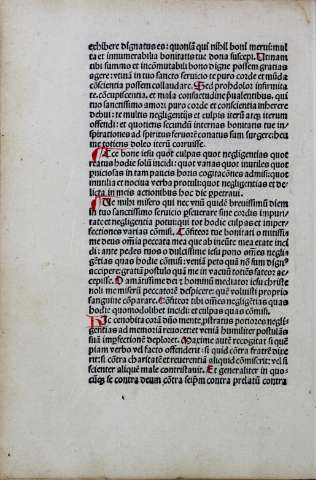 exhibere dignatus es: quoniā qui nihil boni merui: mul
ta et innumerabilia bonitatis tue dona suscepi. Utinam
tibi summo et incōmutabili bono digne possem gratias
agere: vtinā in tuo sancto seruicio te puro corde et mūda
cōscientia possem collaudare. Sed prohdolor infirmita
te. cōcupiscentia. et mala consuetudine p̄ualentibus. qui
tuo sanctissimo amori puro corde et conscientia inherere
debui: te multis negligentijs et culpis iterū atqꝫ iterum
offendi: et quotiens secundū internas bonitatis tue in
spirationes ad spiritus feruorē conatus sum surgere: heu
me totiens doleo iterū corruisse.
Ecce bone iesu quot culpas quot negligentias quot
reatus hodie solū incidi: quot vanas quot inutiles quot
piciosas in tam paucis horis cogitatiōnes admisi: quot
inutilia et nociua verba protuli: quot negligentias et de
licta in meis actiōibus hoc die ppetraui.
Ve mihi misero qui nec vnū quidē breuissimū diem
in tuo sanctissimo seruicio psicurare sine cordis impuri
tate et negligentia potui: qui tot hodie culpas et imper/
fectiones varias cōmisi. Cōfiteor tue bonitati o mitissi/
me deus omīa peccata mea que ab ineūte mea etate inci
di: ante pedes tuos o dulcissime iesu pono omēs negli/
gētias quas hodie cōmisi: veniā peto quā nō sum dign⁹
accipere: gratiā postulo quā me in vacuū totiēs fateor ac
cepisse. O amātissime dei ⁊ hominū mediator iesu christe
noli me miserū peccatorē despicere: quē voluisti proprio
sanguine cōparare. Cōfiteor tibi omēs negligētias quas
hodie quomodolibet incidi: et culpas quas cōmisi.
Hic cenobita corā dn̄o mente. pstratus potiores negli/
gentias ad memoriā reuocet: et veniā humiliter postulās
suā imperfectionē deploret. Maxime autē recogitat si quē
piam verbo vel facto offenderit: si quid cōtra fratrē dixe
rit: si cōtra charitatē et reuerentiā aliquid cōmiserit: vel si
scienter aliquē male contristauit. Et generaliter in quo/
cūqꝫ se contra deum cōtra seip̄m contra prelatū contra